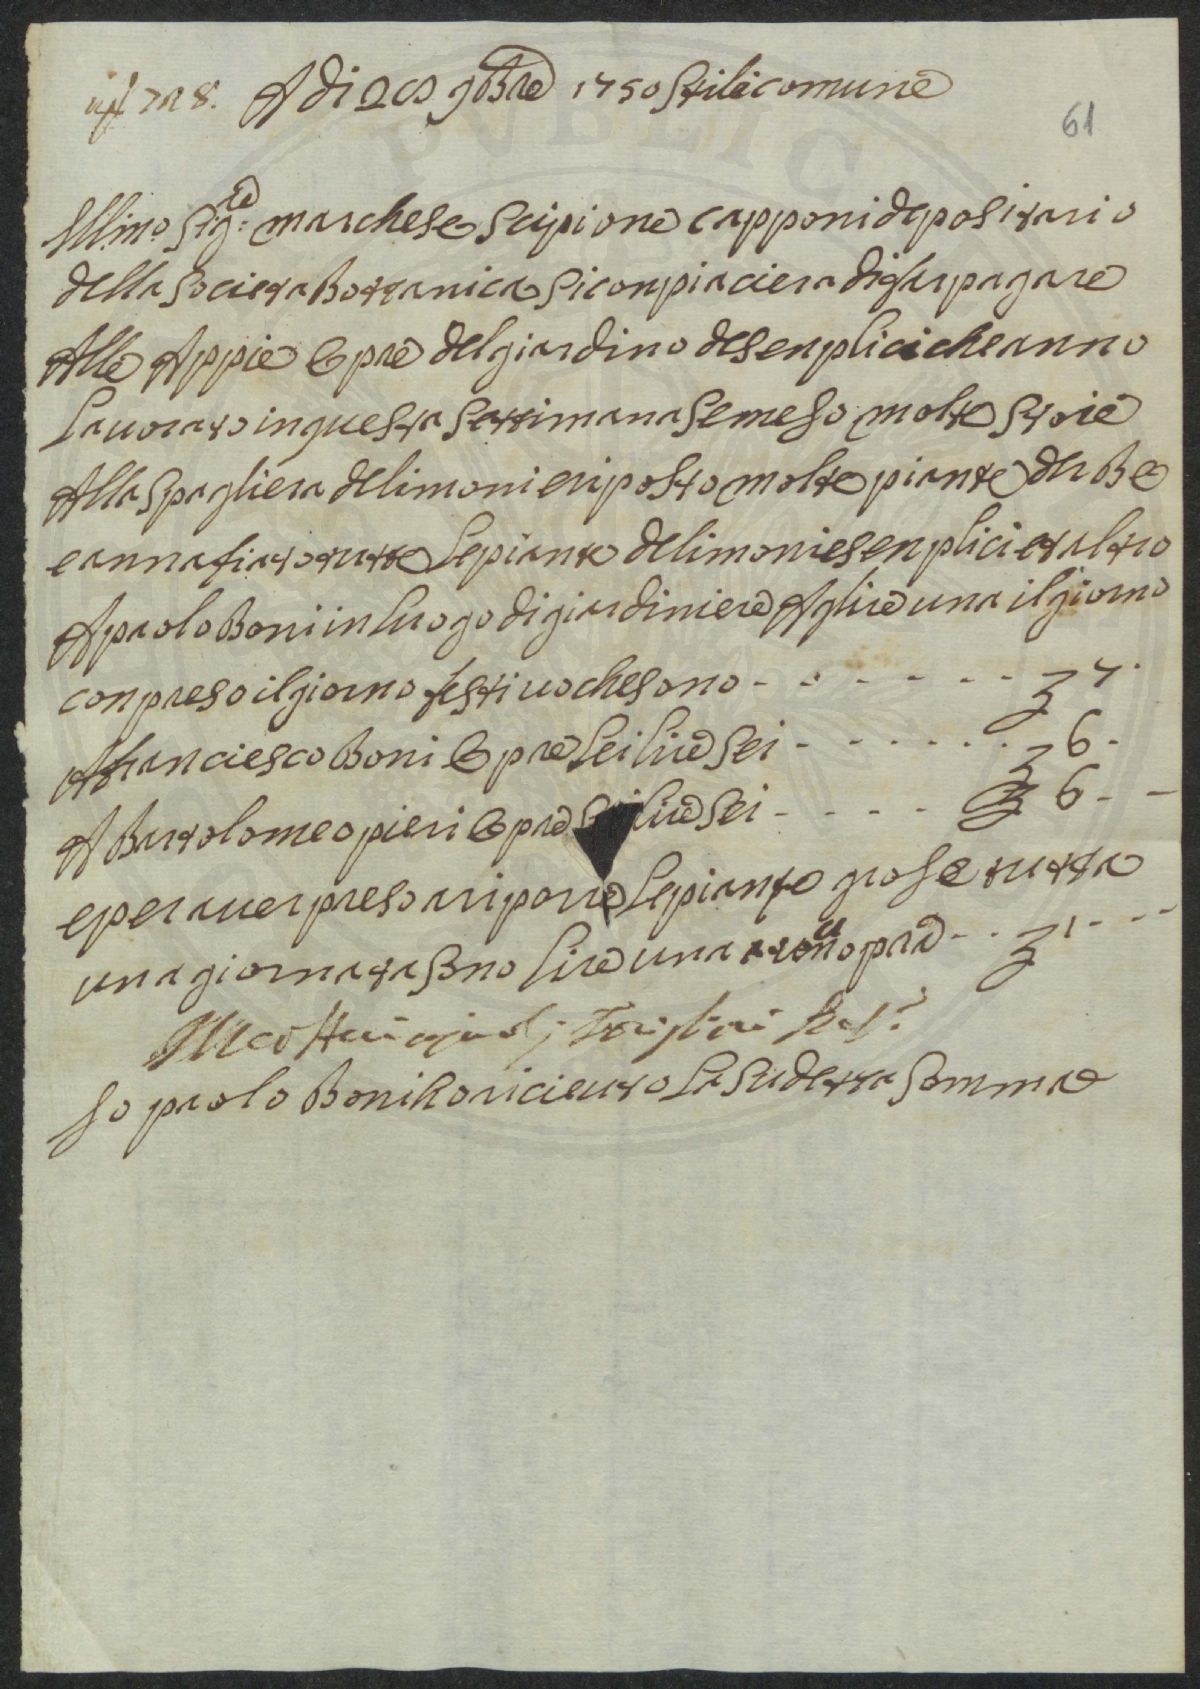 A di 20 9bre 1750 Stile comune
61
Illmo: Sigre: marchese Scipione capponi depositario
della Societa Bottanica Si conpiaciera di far pagare
Alle Appie Opre del giardino de senplici che anno
Lauorato in questa Settimana Se meso molte Stoie
Alla Spagliera de limoni e riposto molte piante der Be
e annafiato tutte Le piante de limoni e senplici et altro
A paolo Boni in Luogo di giardiniere A lire una il giorno
conpreso il giorno festiuo che sono - - - - - - 7.
A franciesco Boni Opre Sei lire Sei - - - - - - 6 -
A Bartolomeo pieri Opre Sei lire Sei - - - - 6 - -
e per auer preso a riporre Le piante grose tutta
una giornata Sono lire una opra - - 1 - - -
Io paolo Boni ho ricieuto La Sudetta Somma